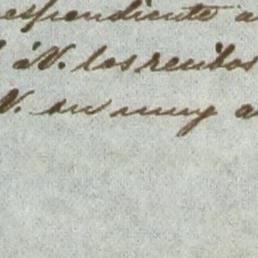 espendiente a
á V. los recibos
V. su muy a